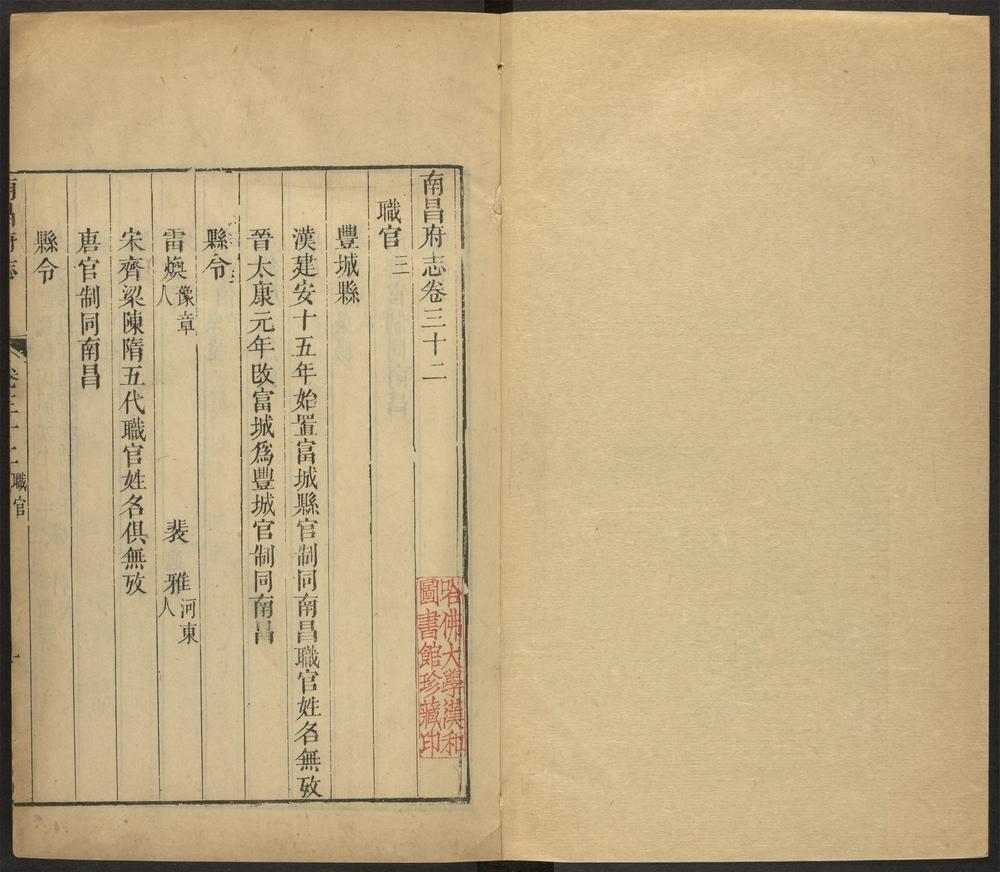 南昌府志卷三十二
職官三
豐城縣
漢建安十五年始置富城縣官制同南昌職官姓名無攷
晉太康元年改富城爲豐城官制同南昌
縣令
雷煥豫章人 裴雅河東人
宋齊梁陳隋五代職官姓名俱無攷
唐官制同南昌
縣令
南昌府志 卷三十二 職官 一
哈佛大學漢和圖書館珍藏印